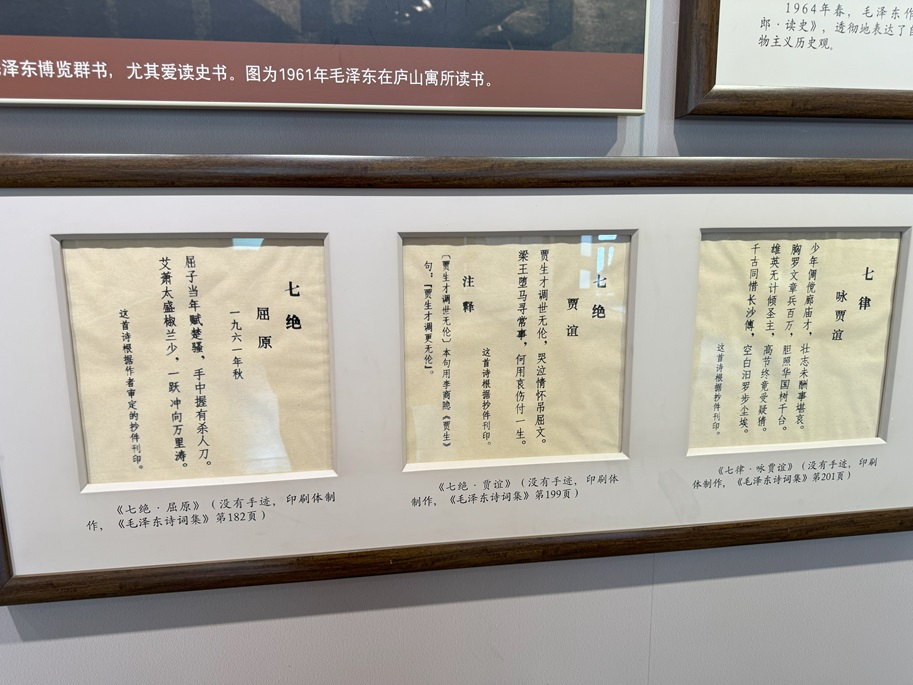 泽东博览群书，尤其爱读史书。图为1961年毛泽东在庐山寓所读书。
1964年春，毛泽东作
郎·读史》，透彻地表达了自
物主义历史观。
七绝
屈原
一九六一年秋
屈子当年赋楚骚，手中握有杀人刀。
艾萧太盛椒兰少，一跃冲向万里涛。
这首诗根据作者审定的抄件刊印。
《七绝·屈原》（没有手迹，印刷体制
作，《毛泽东诗词集》第182頁）
七绝
贾谊
贾生才调世无伦，哭泣情怀吊屈文。
梁王堕马寻常事，何用哀伤付一生。
这首诗根据抄件刊印。
注释
〔贾生才调世无伦〕本句用李商隐《贾生》
句：『贾生才调更无伦』。
《七绝·贾谊》（没有手迹，印刷体
制作，《毛泽东诗词集》第199頁）
七律
咏贾谊
少年倜傥廊庙才，壮志未酬事堪哀。
胸罗文章兵百万，胆照华国树千台。
雄英无计倾圣主，高节终竟受疑猜。
千古同惜长沙傅，空白汨罗步尘埃。
这首诗根据抄件刊印。
《七律·咏贾谊》（没有手迹，印刷
体制作，《毛泽东诗词集》第201頁）